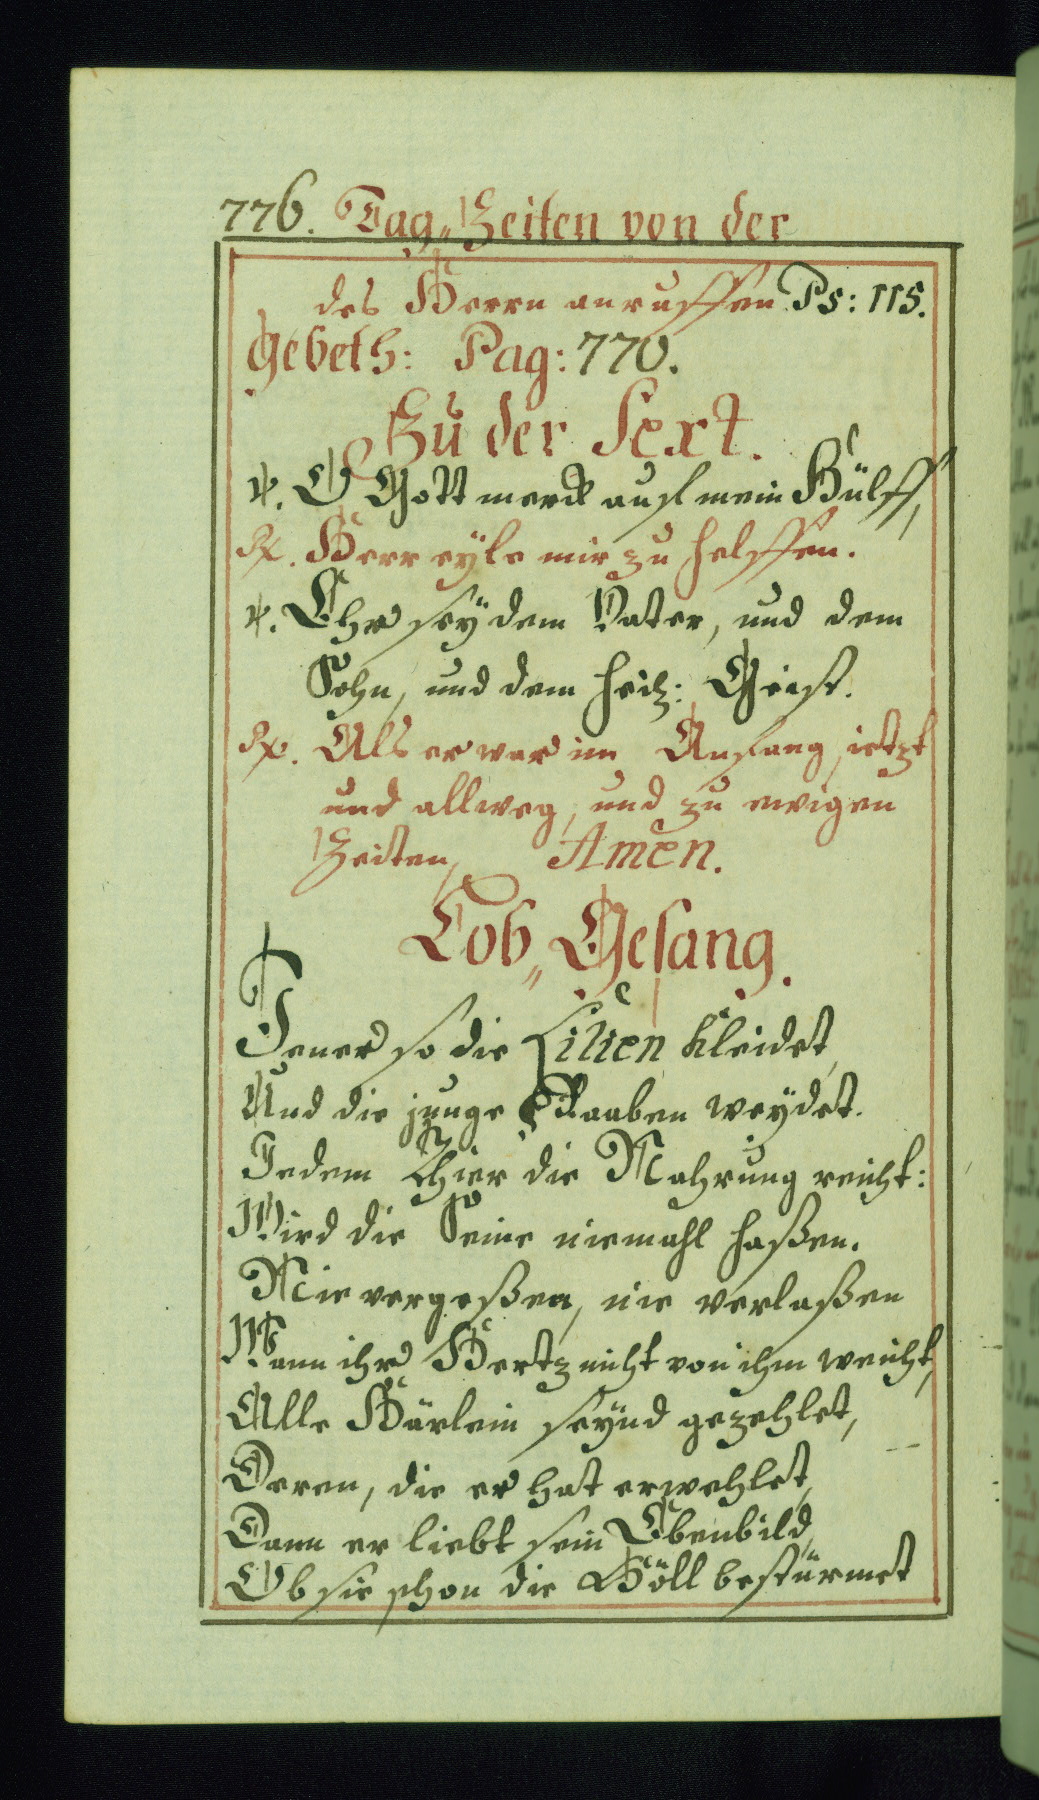 776. Tag„Zeiten von der
des Herrn anruffen Ps: 115.
Gebeth: Pag: 770.
Zu der Sext.
℣. O Gott merck auf mein Hülff,
℟. Herr eyle mir zu helffen.
℣. Ehr seÿ dem Vater, und dem
Sohn, und dem heil: Geist.
℟. Als er war im Anfang, ietzt
und allweg, und zu ewigen
Zeiten, Amen.
Lob„Gesang.
Jener so die Lilien kleidet,
Und die junge Raaben weÿdet.
Jedem Thier die Nahrung reicht:
Wird die Seine niemahl haßen.
Nie vergeßen, nie verlaßen
Wann ihr Hertz nicht von ihm weicht,
Alle Härlein seÿnd gezehlet,
Deren, die er hat erwehlet,
Dann er liebt sein Ebenbild,
Ob sie schon die Höll bestürmet